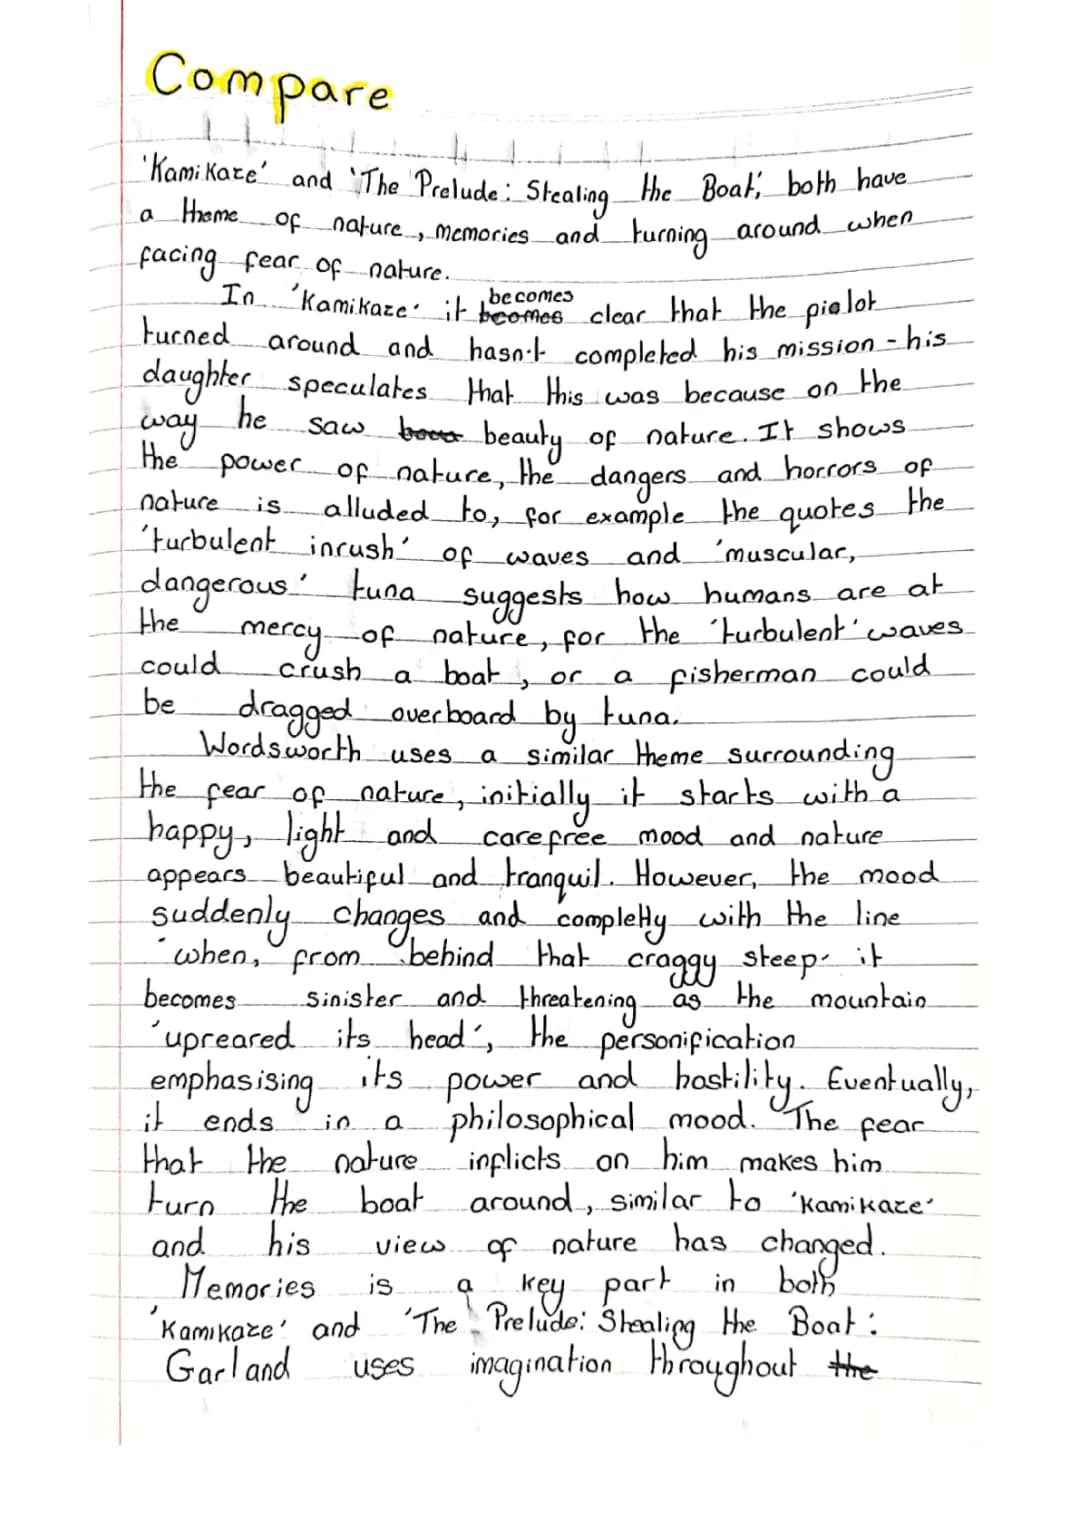 Compare
'Kamikaze' and 'The Prelude: Stealing the Boat', both have
a theme of nature, memories and turning around when
facing fear of nature.
In 'Kamikaze' it becomes clear that the pielot
turned around and hasn't completed his mission - his
daughter speculates that this was because on the
way he saw beauty of nature. It shows
the power of nature, the dangers and horrors of
nature is alluded to, for example the quotes the
'turbulent inrush' of waves and 'muscular,
dangerous' tuna suggests how humans are at
the mercy of nature, for the 'turbulent' waves
could crush a boat, or a fisherman could
be dragged overboard by tuna.
Wordsworth uses a similar theme surrounding
the fear of nature, initially it starts with a
happy, light and carefree mood and nature
appears beautiful and tranquil. However, the mood
suddenly changes and completly with the line
'when, from behind that craggy steep' it
becomes sinister and threatening as the mountain
'upreared its head', the personification
emphasising its power and hostility. Eventually,
it ends in a philosophical mood. The fear
that the nature inflicts on him makes him
turn the boat around, similar to 'Kamikaze'
and his view of nature has changed.
Memories is a key part in both
'Kamikaze' and 'The Prelude: Stealing the Boat:
Garland uses imagination throughout the